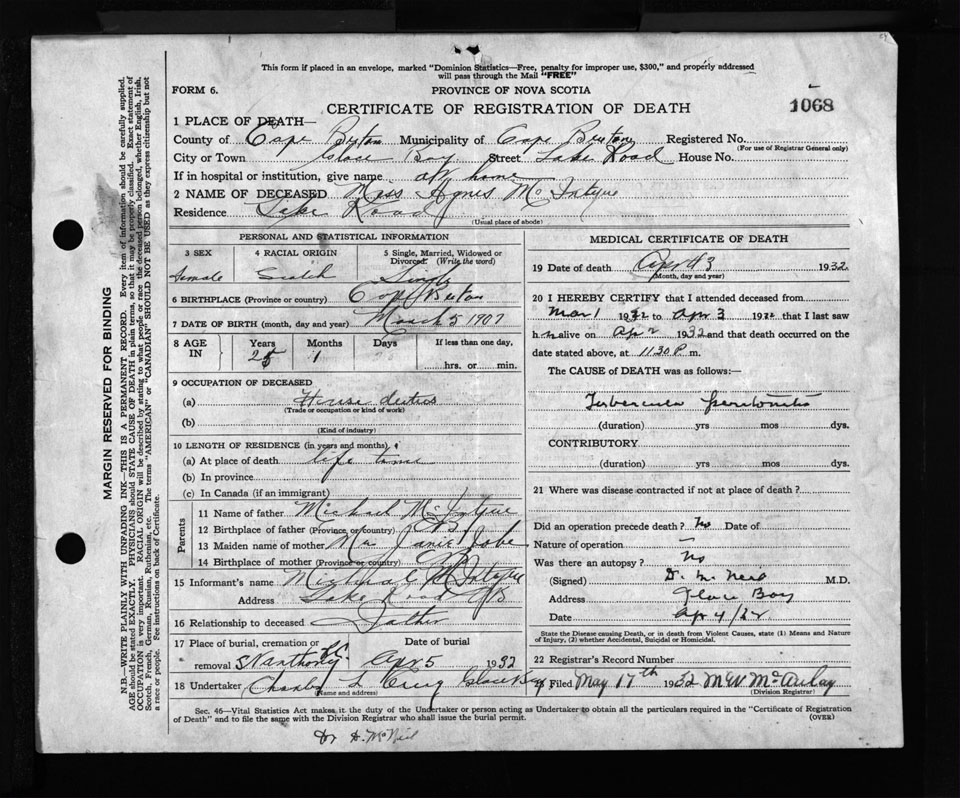 This form if placed in an envelope, marked "Dominion Statistics—Free, penalty for improper use, $300," and properly addressed
will pass through the Mail "FREE"
FORM 6.
PROVINCE OF NOVA SCOTIA
CERTIFICATE OF REGISTRATION OF DEATH
1068
1 PLACE OF DEATH—
County of Cape Breton Municipality of Cape Breton Registered No.
(For use of Registrar General only)
City or Town Glace Bay Street Lake Road House No.
If in hospital or institution, give name at home
2 NAME OF DECEASED Agnes McIntyre
Residence Lake Road
(Usual place of abode)
PERSONAL AND STATISTICAL INFORMATION
3 SEX
4 RACIAL ORIGIN
5 Single, Married, Widowed or Divorced. (Write the word)
female
Scotch
Single
6 BIRTHPLACE (Province or country) Cape Breton
7 DATE OF BIRTH (month, day and year) March 5 1907
8 AGE IN
Years
Months
Days
If less than one day,
25
1
hrs. or min.
9 OCCUPATION OF DECEASED
(a) House duties
(Trade or occupation or kind of work)
(b)
(Kind of industry)
10 LENGTH OF RESIDENCE (in years and months)
(a) At place of death life time
(b) In province
(c) In Canada (if an immigrant)
Parents
11 Name of father Michael McIntyre
12 Birthplace of father (Province or country) C B
13 Maiden name of mother
14 Birthplace of mother (Province or country)
15 Informant's name McIntyre
Address Lake Road
16 Relationship to deceased Father
17 Place of burial, cremation or removal St Anthony
Date of burial
Apr 5 1932
18 Undertaker Glace Bay
(Name and address)
MEDICAL CERTIFICATE OF DEATH
19 Date of death April 3 1932
(Month, day and year)
20 I HEREBY CERTIFY that I attended deceased from
Mar 1 1932 to Apr 3 1932 that I last saw
h er alive on Apr 2 1932 and that death occurred on the
date stated above, at 11.30 P. m.
The CAUSE of DEATH was as follows:—
Tubercular peritonitis
(duration) yrs mos dys.
CONTRIBUTORY
(duration) yrs mos dys.
21 Where was disease contracted if not at place of death?
Did an operation precede death? No Date of
Nature of operation
Was there an autopsy? No
(Signed) D. McNeil M.D.
Address Glace Bay
Date Apr 4/32
State the Disease causing Death, or in death from Violent Causes, state (1) Means and Nature
of Injury, (2) whether Accidental, Suicidal or Homicidal.
22 Registrar's Record Number
Filed May 17th 1932 M W McAulay
(Division Registrar)
Sec. 46—Vital Statistics Act makes it the duty of the Undertaker or person acting as Undertaker to obtain all the particulars required in the "Certificate of Registration
of Death" and to file the same with the Division Registrar who shall issue the burial permit.
(OVER)
Dr D. McNeil
MARGIN RESERVED FOR BINDING
N.B.—WRITE PLAINLY WITH UNFADING INK—THIS IS A PERMANENT RECORD. Every item of information should be carefully supplied.
AGE should be stated EXACTLY. PHYSICIANS should STATE CAUSE OF DEATH in plain terms, so that it may be properly classified. Exact statement of
OCCUPATION is very important. RACIAL ORIGIN will be described by stating to what people or race the deceased person belonged, whether English, Irish,
Scotch, French, German, Russian, Ruthenian, etc. The terms "AMERICAN" or "CANADIAN" SHOULD NOT BE USED as they express citizenship but not
a race or people. Fee instructions on back of Certificate.